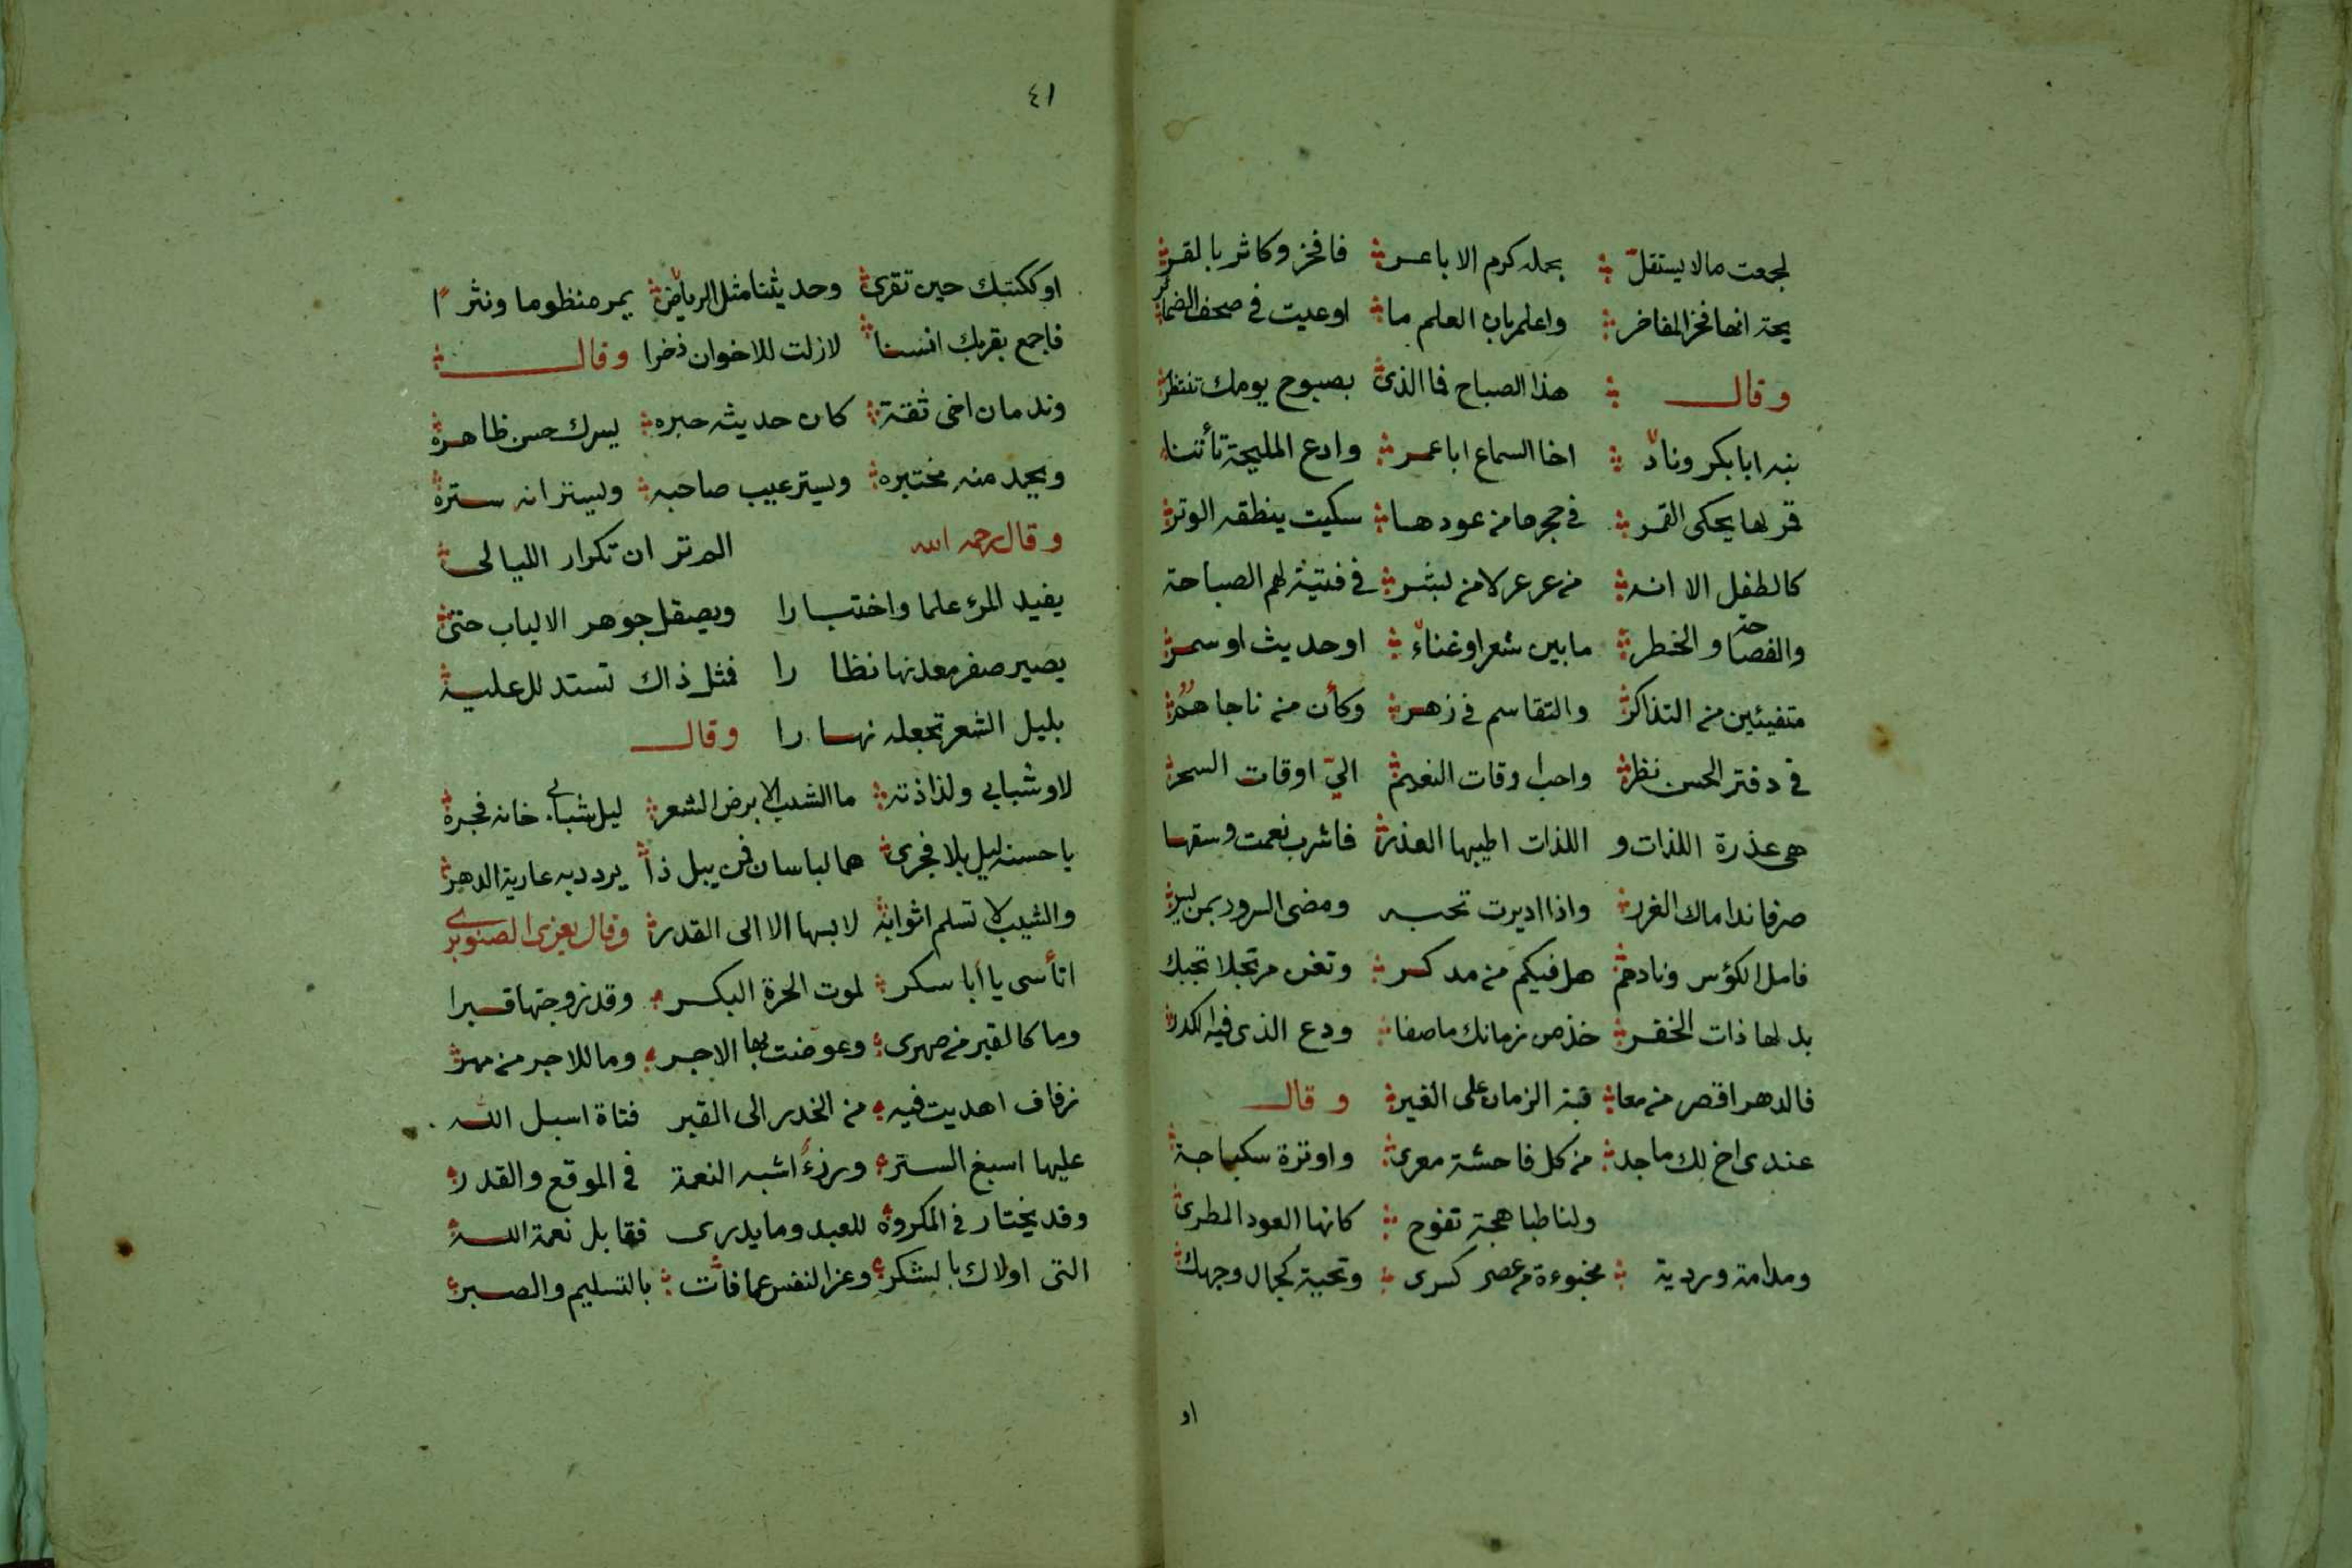 لجمعت مالا يستقلّ بحمله كرم الاباعر فافخر وكاثر بالقر
يحة انها فخر المفاخر واعلم بان العلم ما اوعيت في صحف الضمائر
وقال هذا الصباح فما الذي بصبوح يومك تنتظر
نبه ابا بكر ونادّ اخا السماع ابا عمر وادع المليحة تأتنا
قمر لها يحكى القمر في حجرها من عودها سكيت ينطقه الوتر
كالطفل الا انه من عرعر لا من بشر في فتية لهم الصباحة
والفصاحة والخطر ما بين شعر او غناءّ او حديث او سمر
متفيئين من التذاكر والتقاسم في زهر وكأن من ناجاهمُ
في دفتر الحسن نظر واحب اوقات النعيم اليّ اوقات السحر
هى عذرة اللذات و اللذات اطيبها العذر فاشرب نعمت وسقها
صرفا نداماك الغرر واذا اديرت تحبه ومضى السرور بمن يسر
فامل الكؤس ونادهم هل فيكم من مدكر وتغن مرتجلا تجبك
بد لها ذات الخفر خذ من زمانك ما صفا ودع الذى فيه الكدر
فالدهر اقصر من معا تبة الزمان على الغير وقال
عندى اخ لك ماجد من كل فاحشة معرى واوترة سكباجة
ولنا طباهجة تفوح كانها العود المطرى
ومدامة وردية مخبوءة من عصر كسرى وتحية كجمال وجهك
او
٤١
او ككتبك حين تقرى وحديثنا مثل الرياض يمر منظوما ونثرا
فاجمع بقربك انسنا لازلت للاخوان ذخرا وقال
وندمان اخى ثقة كان حديثه حبره يسرك حسن ظاهره
ويحمد منه مختبره ويستر عيب صاحبه ويستر انه ستره
وقال رحمه الله الم تر ان تكرار الليالى
يفيد المرء علما واختبارا ويصقل جوهر الالباب حتى
يصير صفر معدنها نظارا فمثل ذاك تستدلل عليه
بليل الشعر تجعله نهارا وقال
لا وشبابي ولذاذته ما الشيب الا برض الشعر ليل شبابي خانه فجره
يا حسنه ليل بلا فجرى هما لباسان فمن يبل ذا يردد به عارية الدهر
والشيب لا تسلم اثوابه لابسها الا الى القدر وقال يعزى الصنوبري
اتأسى يا أبا سكر لموت الحرة البكر وقد زوجتها قبرا
وما كالقبر من صهرى وعوضت بها الاجر وما للاجر من مهر
زفاف اهديت فيه من الخدر الى القبر فتاة اسبل الله
عليها اسبغ الستر ورزءُ اشبه النعمة في الموقع والقدر
وقد يختار في المكروه للعبد وما يدرى فقابل نعمة الله
التى اولاك بالشكر وعز النفس عما فات بالتسليم والصبر